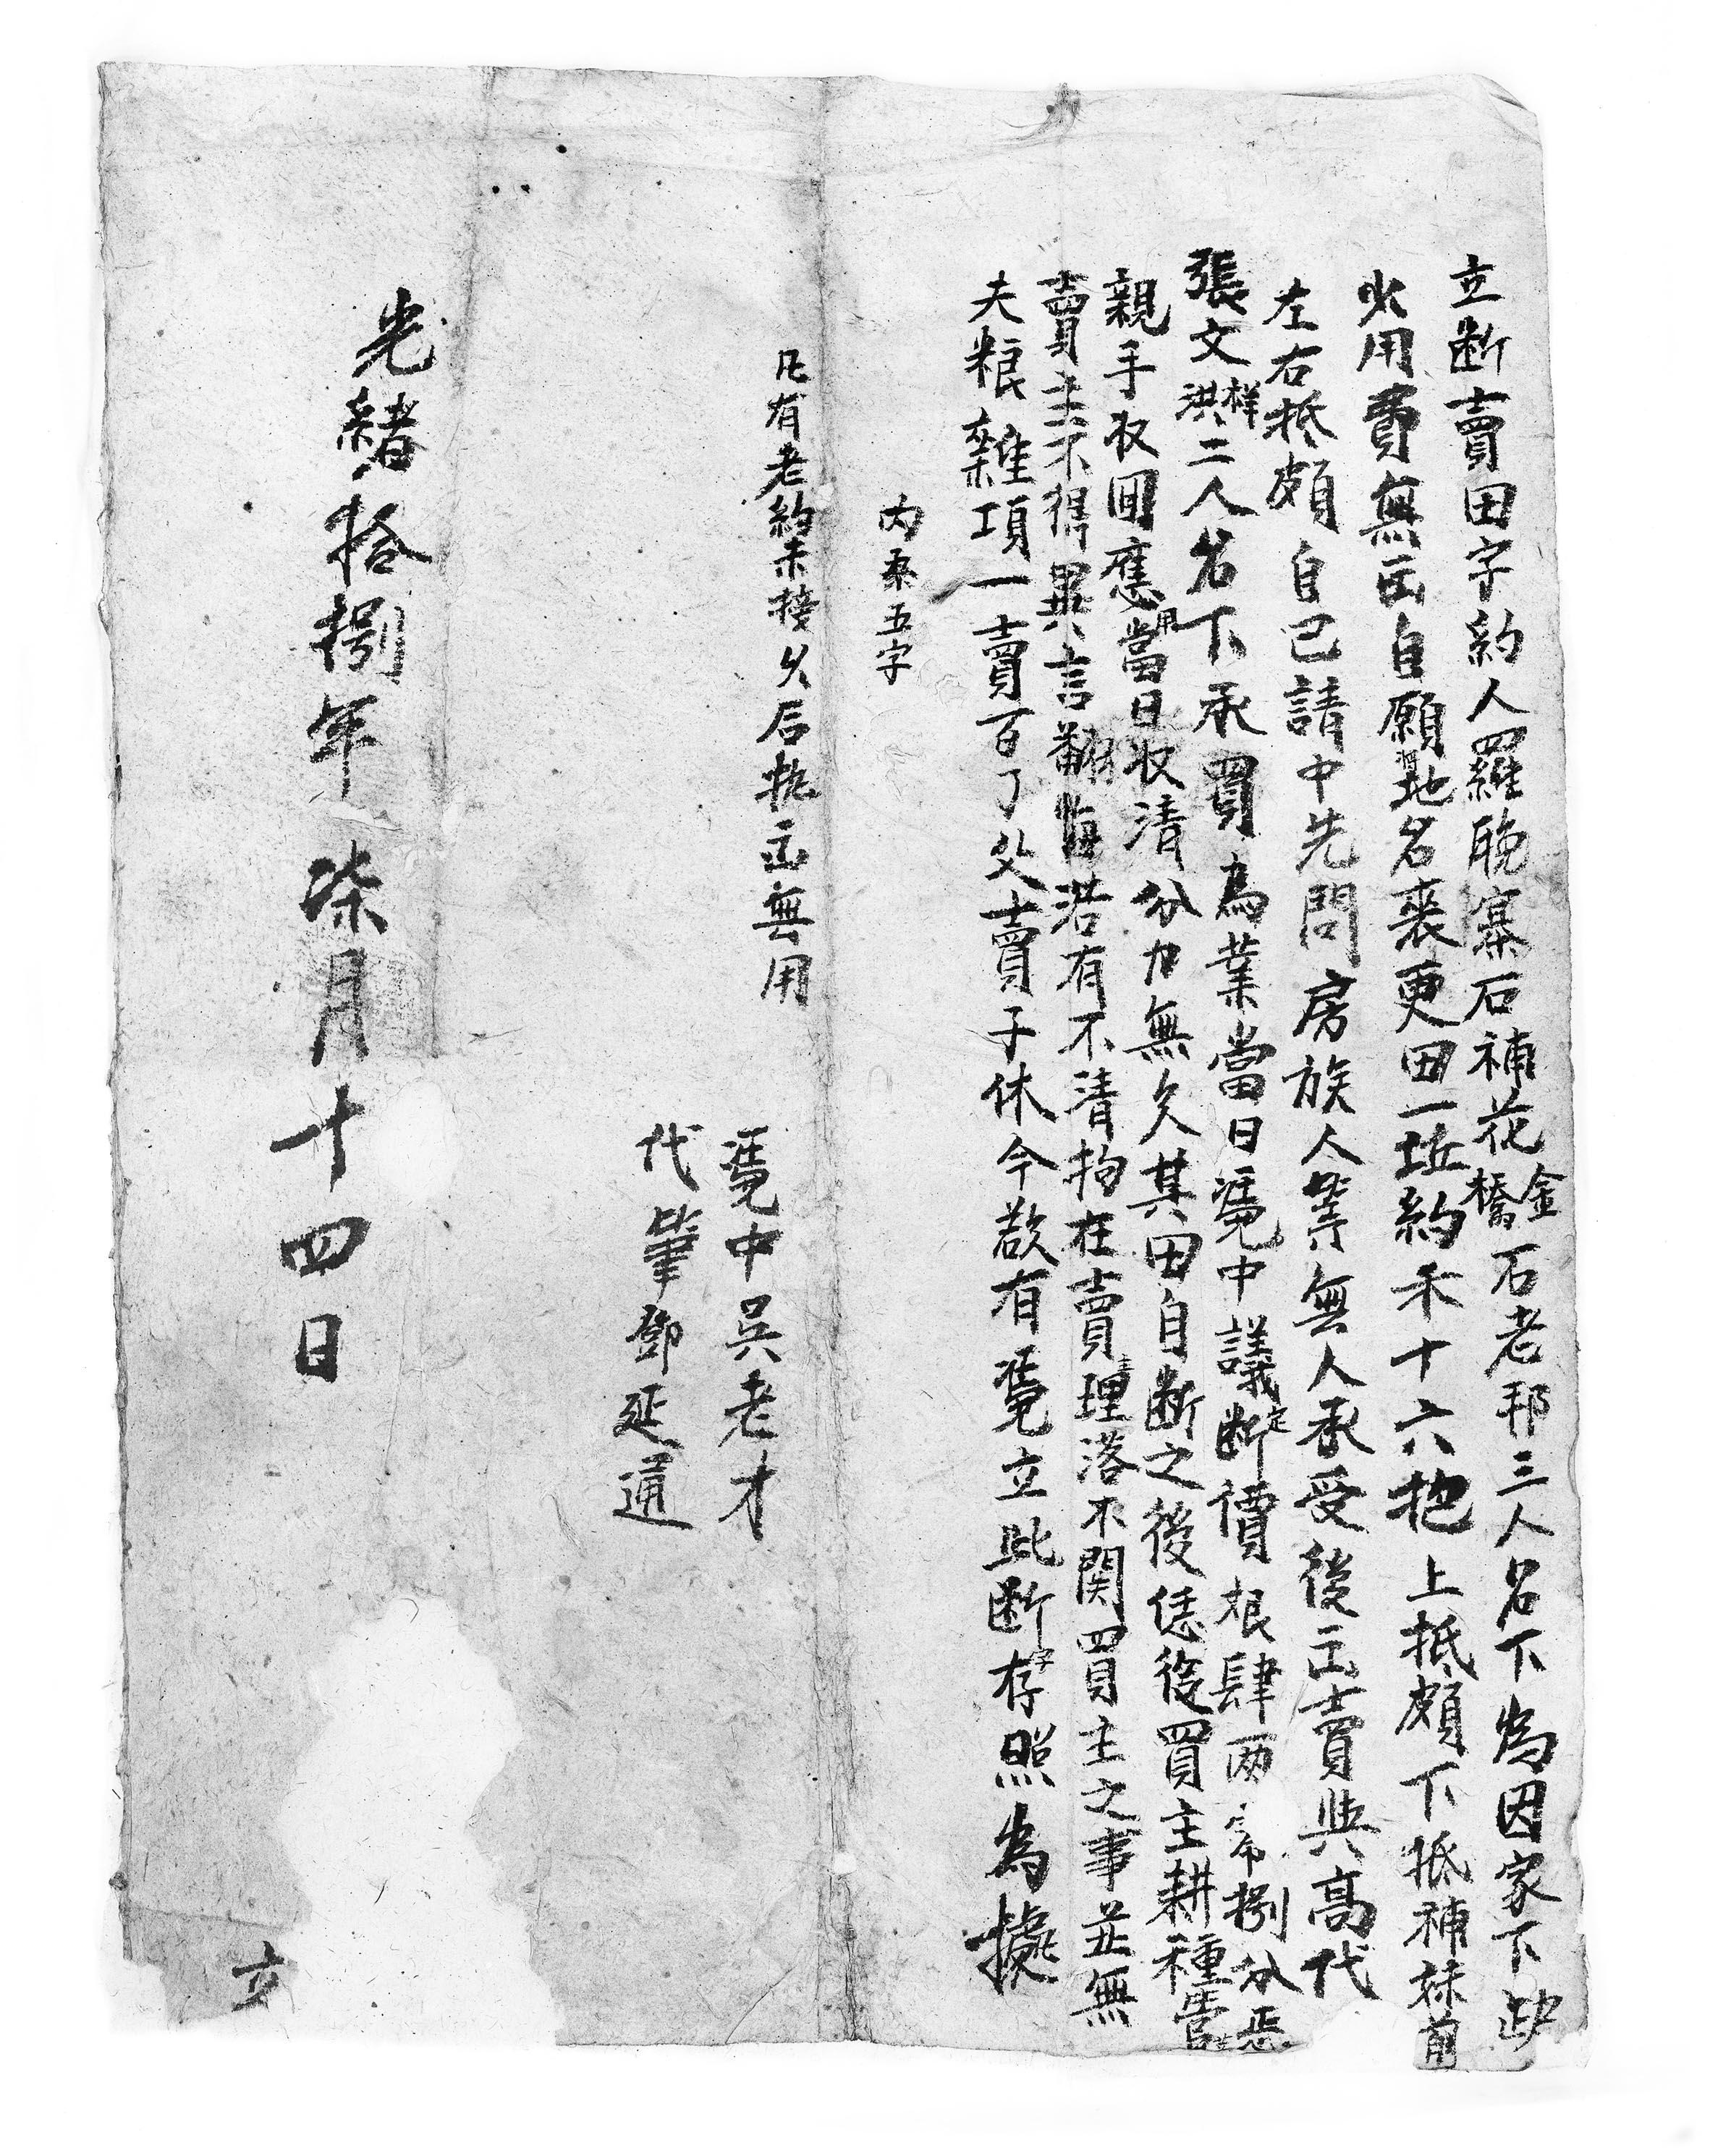 立断賣田字約人羅晚寨石補花金橋石老邦三人名下為因家下缺
火用費無出自願將地名裘更田一坵約禾十六把上抵頗下抵補妹前
左右抵頗自己請中先問房族人等無人承受後出賣與高代
張文祥洪二人名下承買為業當日凴中議定断價根肆两零捌分悉
親手收回應用當日收清分力無欠其田自断之後恁從買主耕種管
賣主不得異言翻悔若有不清拘在賣主理落不関買主之事並無
夫粮雜項一賣百了父賣子休今欲有凴立此断字存照為據
内添五字
凡有老約未接父后执出無用
凴中吳老才
代筆鄧延通
光緒拾捌年柒月十四日立